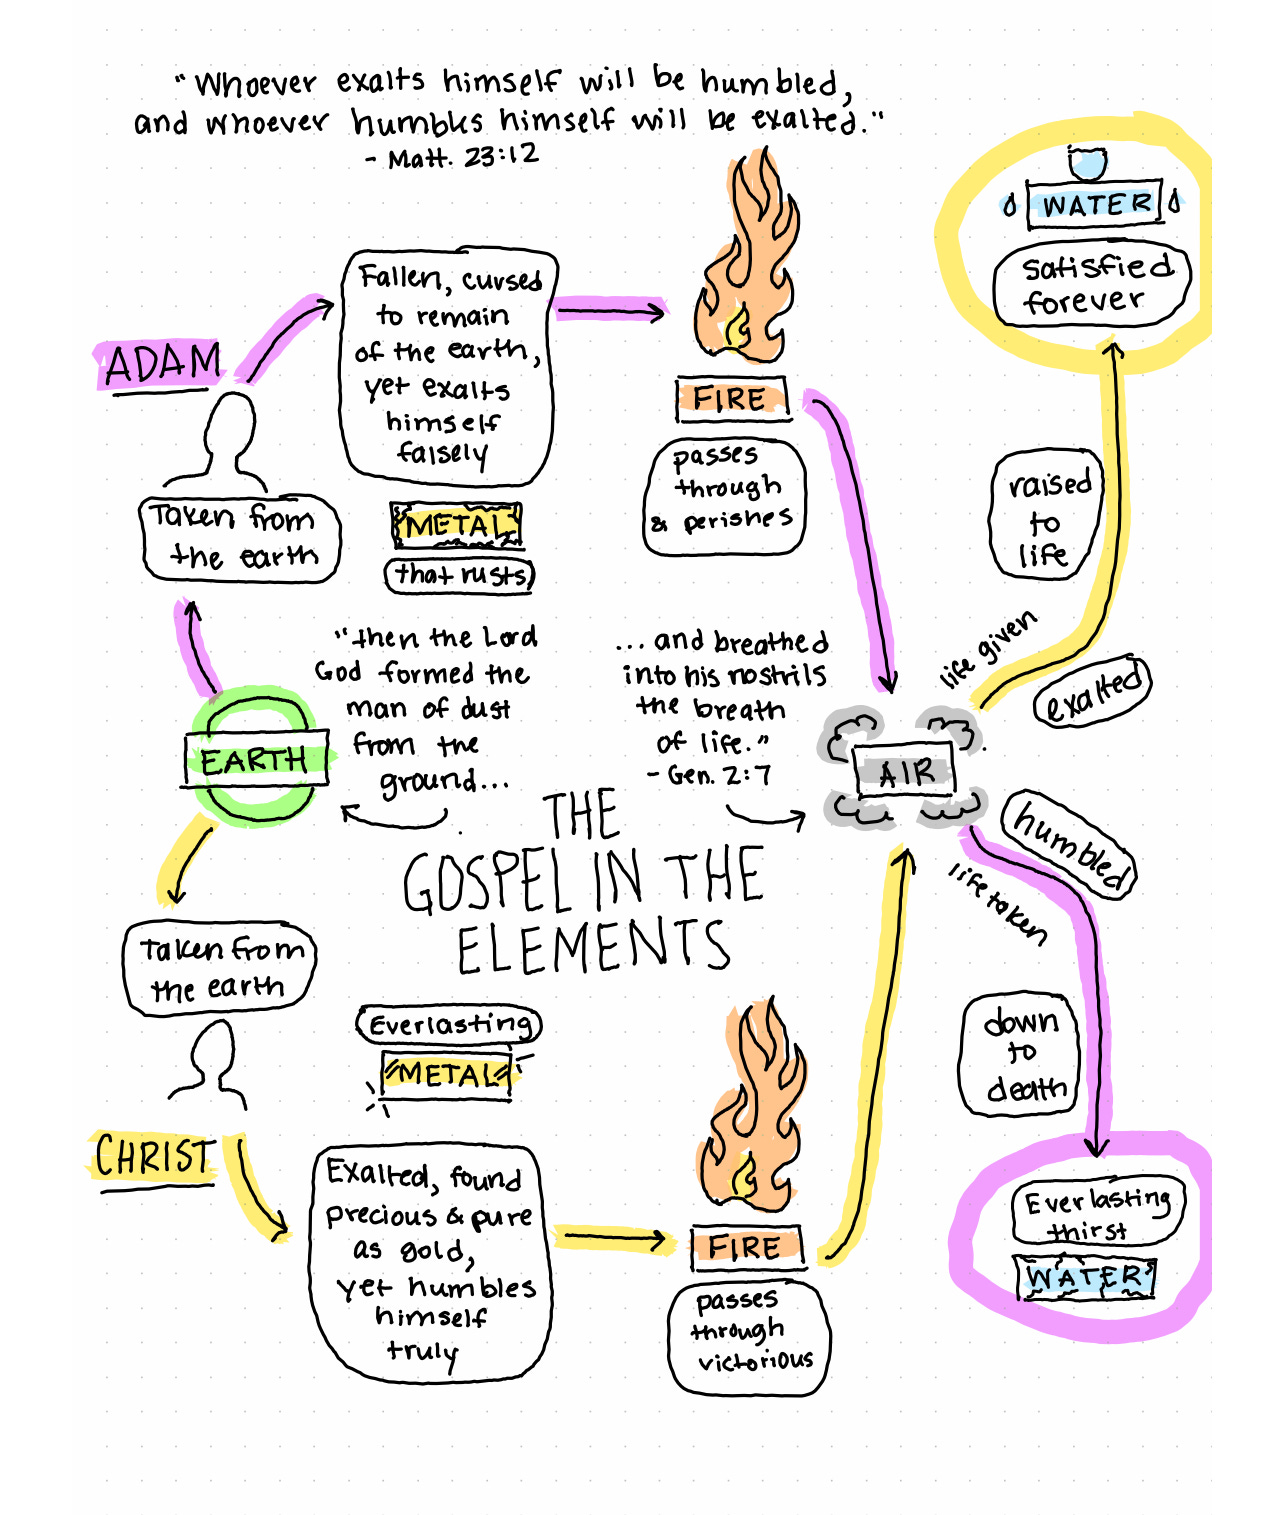 "Whoever exalts himself will be humbled,
and whoever humbles himself will be exalted."
- Matt. 23:12
ADAM
Taken from
the earth
Fallen, cursed
to remain
of the earth,
yet exalts
himself
falsely
METAL
that rusts
FIRE
passes
through
& perishes
WATER
satisfied
forever
raised
to
life
life given
exalted
EARTH
"then the Lord
God formed the
man of dust
from the
ground...
...and breathed
into his nostrils
the breath
of life."
- Gen. 2:7
AIR
THE
GOSPEL IN THE
ELEMENTS
humbled
life taken
down
to
death
Taken from
the earth
CHRIST
Everlasting
METAL
Exalted, found
precious & pure
as gold,
yet humbles
himself
truly
FIRE
passes
through
victorious
Everlasting
thirst
WATER